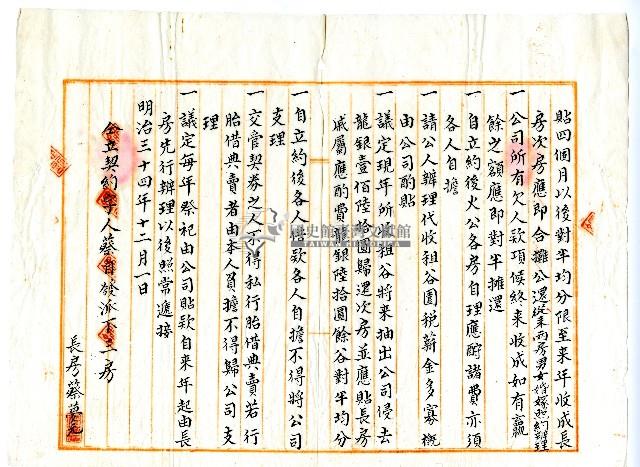 貼四個月以後對半均分限至来年收成長
房次房應即合攤公還從来两房男女婚嫁照約辦理
一公司所有欠人款項候終来收成如有贏
餘之額應即對半攤還
一自立約後火公各房自理應酧諸費亦須
各人自擔
一請公人辦理代收租谷園稅薪金多寡概
由公司酌貼
一議定現年所收租谷将来抽出公司侵去
龍銀壹佰陸拾圓歸還次房並應貼長房
戚屬應酌費龍銀陸拾圓餘谷對半均分
一自立約後各人借款各人自擔不得將公司
支理
一交管契券之人不得私行胎借典賣若行
胎借典賣者由本人負擔不得歸公司支
理
一議定每年祭祀由公司貼款自来年起由長
房先行辦理以後照常遞接
明治三十四年十二月一日
仝立契約字人蔡 發派下二房
長房蔡
國史館臺灣文獻館
TAIWAN HISTORICA